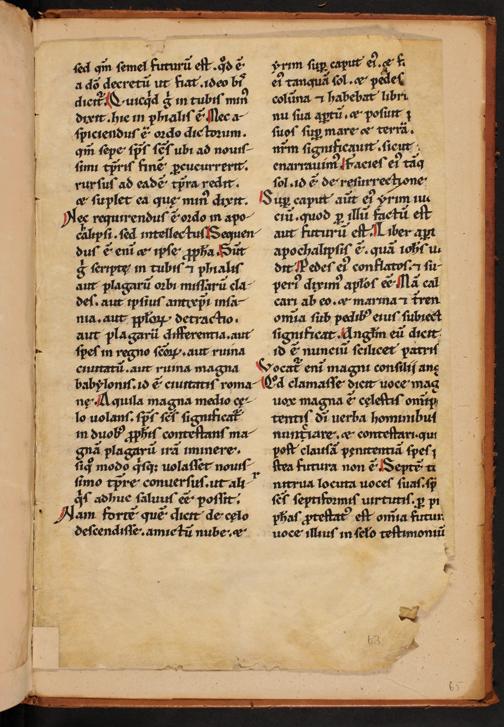 sed qm̄ semel futurū est. qd ē
a do decretū ut fiat. ideo bis
dicit. Quicqd g̃ in tubis min⁹
dixit. hic in phialis ē. Nec a
spiciendus ē ordo dictorum.
qm̄ sepe sps̄ scs̄ ubi ad novis
simi tp̄ris finē ꝑcucurrerit.
rursus ad eadē tp̄ra redit.
et suplet ea que min⁹ dixit.
Nec requirendus ē ordo in apo
calipsi. sed intellectus. Sequen
dus ē enī et ipse ꝓph̄a. Sūt
g̃ scripte in tubis et phialis
aut plagarū orbi missarū cla
des. aut ipsius antixpi insa
nia. aut pplorꝝ detractio.
aut plagarū differentia. aut
spes in regno scōꝝ. aut ruina
ciuitatū. aut ruina magna
babylonis. id ē ciuitatis roma
ne. Aquila magna medio ce
lo volans. sps̄ scs̄ significat̄
in duob⁹ ꝓph̄is contestans ma
gnā plagarū irā iminere.
siq⁹ modo qisq; volasset novis
simo tp̄re conversus. ut ali
qs adhuc salvus eē possit.
Nam fortē quē dicit de celo
descendisse. amictū nube. et
yrim sup caput ei⁹. et f
ei⁹ tanquā sol. et pedes
colūna ⁊ habebat libri
nu sua aptū. et posuit p
suos sup mare et terrā.
nr̄m significauit. sicut
enarravim⁹. Facies ei⁹ tāq
sol. id ē de resurrectione
Sup caput aūt ei⁹ yrim iu
ciū. quod ꝑ illū factū est
aut futurū est. Liber apt
apochalipsis ē. quā iohs̄ ui
dit. Pedes ei⁹ conflatos. ⁊ su
peri⁹ dixim⁹ apl̄os eē. Nā cal
cari ab eo. et marina ⁊ tren
omīa sub pedib⁹ eius subiect
significat. Angl̄m eū dicit.
id ē nunciū scilicet patris
Vocat̄ enī magni consilii ang
Qd clamasse dicit voce mag
vox magna ē celestis omīp
tentis di verba hominibus
nuntiare. et contestari. qui
post clausā penitentiā spes p
stea futura non ē. Septē ti
nitrua locuta voces suas. sp̄
scs̄ septiformis virtutis. ꝑ pꝛ
phas ꝓtestat⁹ est omīa futur
voce illius in selo testimoniū
63
65